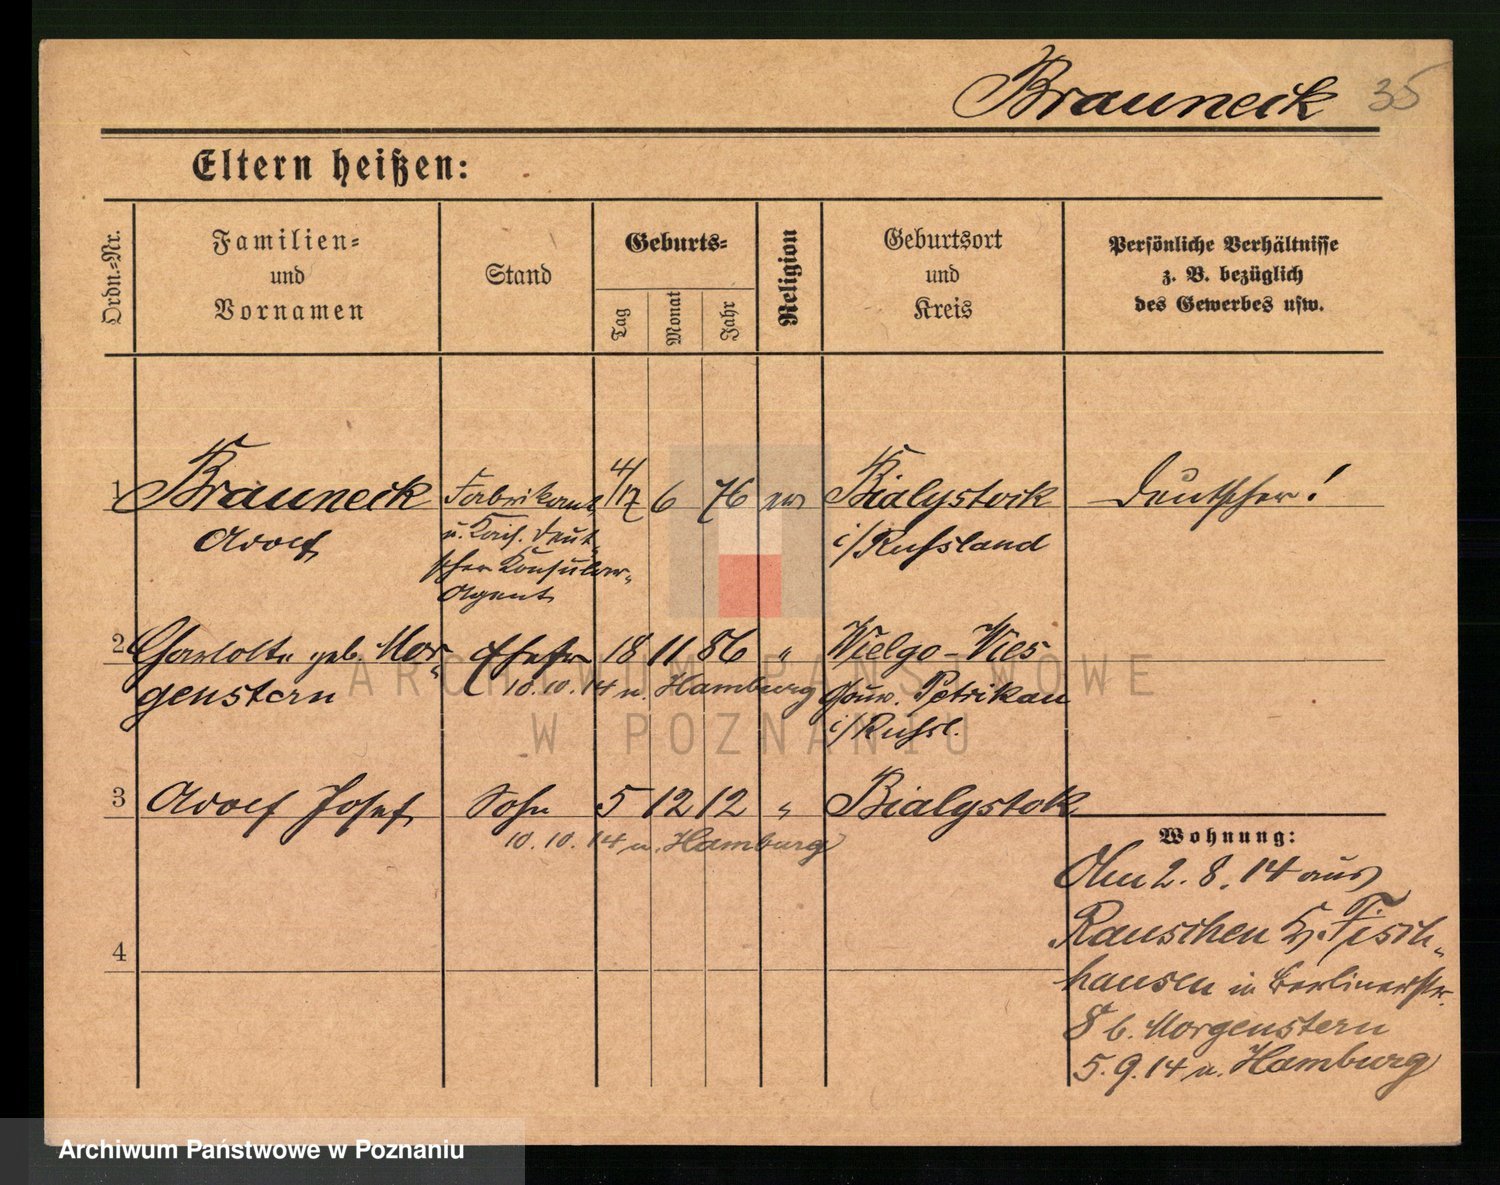 Brauneck 35
Eltern heißen:
Ordn.-Nr.
Familien-
und
Vornamen
Stand
Geburts-
Tag
Monat
Jahr
Religion
Geburtsort
und
Kreis
Persönliche Verhältnisse
z. B. bezüglich
des Gewerbes usw.
1 Brauneck Fabrikant 4/17 6 76 ev Bialystock Deutscher!
Adolf u. Kais. Deut- i/Russland
scher Konsular-
Agent
2 Charlotte geb. Mor- Ehefr 18 11 86 " Wielgo-Wies
genstern 10.10.14 n. Hamburg Gouv. Petrikau
i/Russl.
3 Adolf Josef Sohn 5 12 12 " Bialystok
10.10.14 n. Hamburg
4
Wohnung:
Am 2.8.14 aus
Rauschen K. Fisch-
hausen in Berlinerstr.
8 b. Morgenstern
5.9.14 n. Hamburg
ARCHIWUM PAŃSTWOWE
W POZNANIU
Archiwum Państwowe w Poznaniu